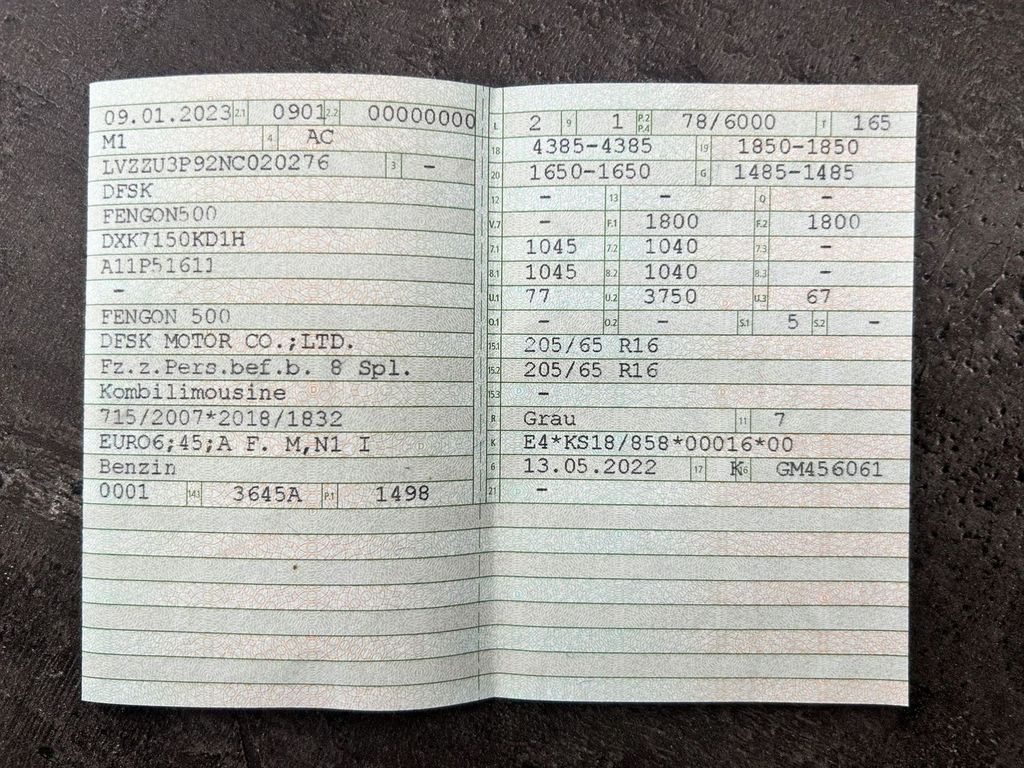 09.01.2023 2.1 0901 2.2 00000000
M1 4 AC
LVZZU3P92NC020276 3 –
DFSK
FENGON500
DXK7150KD1H
A11P5161J
–
FENGON 500
DFSK MOTOR CO.;LTD.
Fz.z.Pers.bef.b. 8 Spl.
Kombilimousine
715/2007*2018/1832
EURO6;45;A F. M,N1 I
Benzin
0001 14.1 3645A P.1 1498
L 2 9 1 P.2 P.4 78/6000 T 165
18 4385-4385 19 1850-1850
20 1650-1650 G 1485-1485
12 – 13 – Q –
V.7 – F.1 1800 F.2 1800
7.1 1045 7.2 1040 7.3 –
8.1 1045 8.2 1040 8.3 –
U.1 77 U.2 3750 U.3 67
O.1 – O.2 – S.1 5 S.2 –
15.1 205/65 R16
15.2 205/65 R16
15.3 –
R Grau 11 7
K E4*KS18/858*00016*00
6 13.05.2022 17 K 16 GM456061
21 –